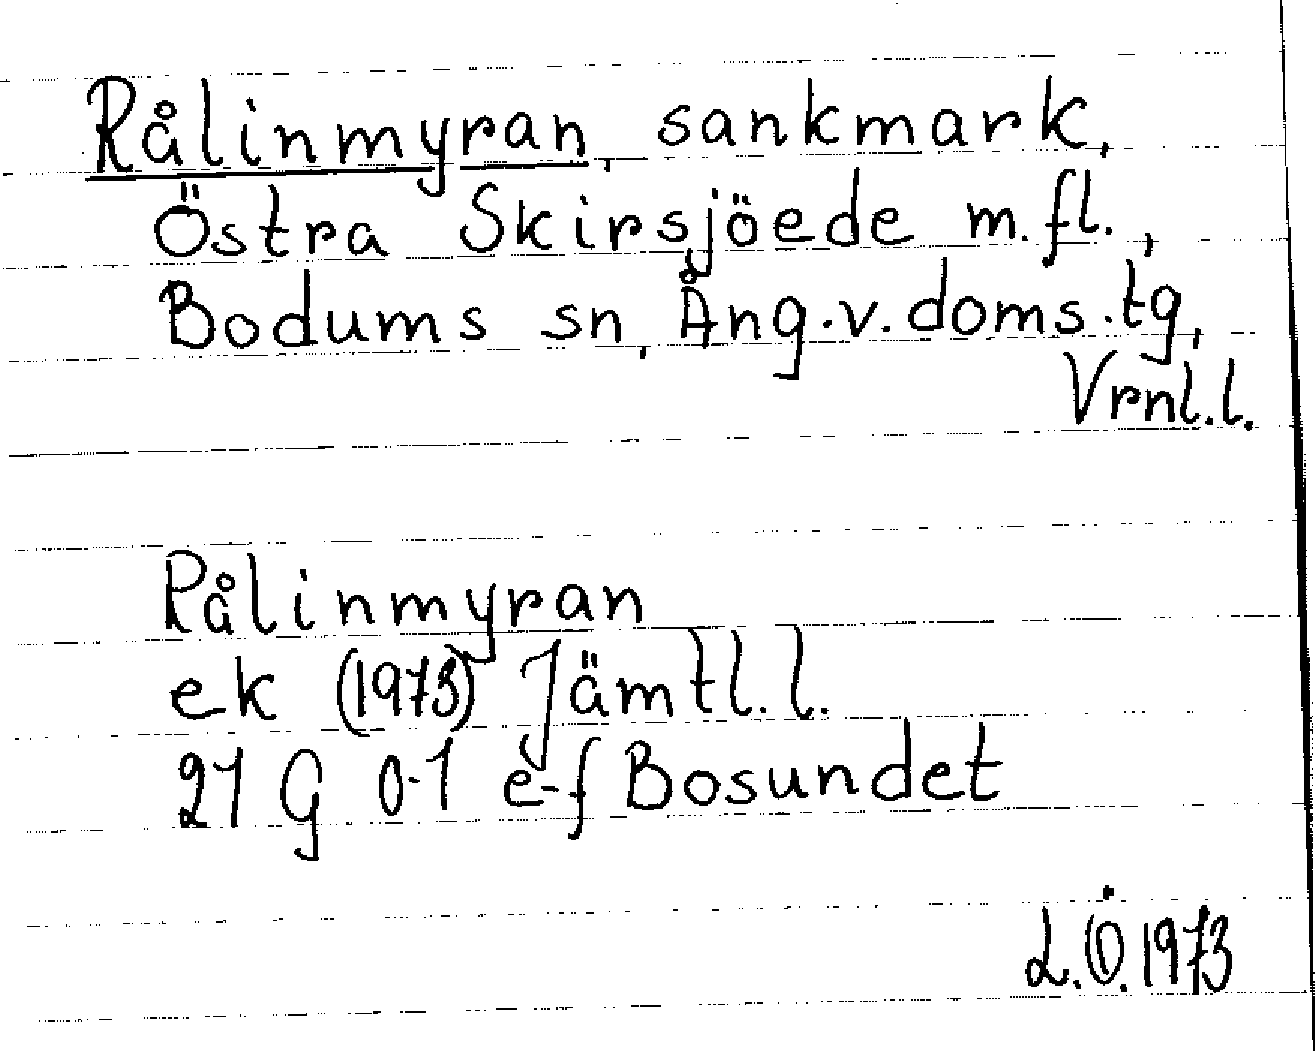 Rålinmyran, sankmark,
Östra Skirsjöede m.fl.,
Bodums sn, Ång.v.doms.tg,
Vrnl.l.
Rålinmyran
ek (1973) Jämtl.l.
21 G 0-1 e-f Bosundet
L.Ö.1973